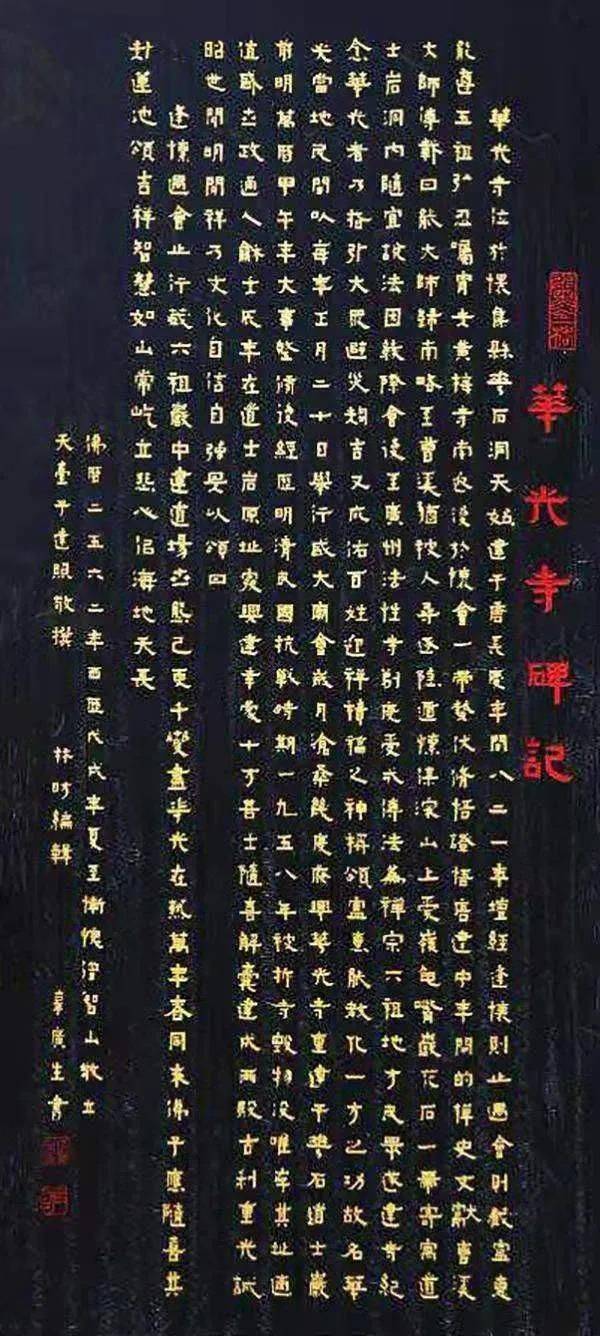 華光寺碑記
華光寺位於懷集縣花石洞天始建于唐長慶年間八二一年壇經逢懷則止遇會則藏盧惠
能遵五祖弘忍囑宵去黃梅寺南遁後於懷會一帶蟄伏修悟證悟唐建中年間的禪史文獻曹溪
大師傳載曰能大師歸南略至曹溪猶被人尋逐隱遁懷集深山上愛嶺龜嘴巖花石一帶寄寓道
士岩洞內隨宜說法因教隆會後至廣州法性寺剃度受戒傳法為禪宗六祖地方民眾遂建寺紀
念華光者乃指引大眾避災趨吉又庇佑百姓迎祥積福之神稱頌盧惠能教化一方之功故名華
光當地民間以每年正月二十日舉行盛大廟會歲月滄桑幾度廢興華光寺重建于花石道士巖
前明萬曆甲午年大事整修後經歷明清民國抗戰時期一九五八年被拆寺毀物沒唯存其址適
值盛世政通人和士民幸在道士岩原址宏興建幸蒙十方善士隨喜解囊建成兩殿古剎重光誠
昭世間明開祥乃文化自信自強是以頌曰
逢懷遇會止行藏六祖巖中建道場世態已更千變盡華光在然萬年春同來佛子應隨喜共
對蓮池頌吉祥智慧如山常屹立慈心似海地天長
佛曆二五六二年西歷戊戌年夏至慚愧僧智山敬立
天臺子達照敬撰 林時編輯 辜廣生書